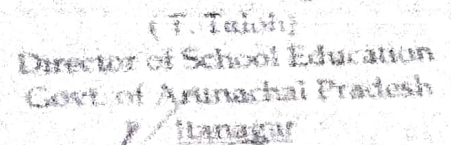 ( T. Taloh)
Director of School Education
Govt. of Arunachal Pradesh
Itanagar